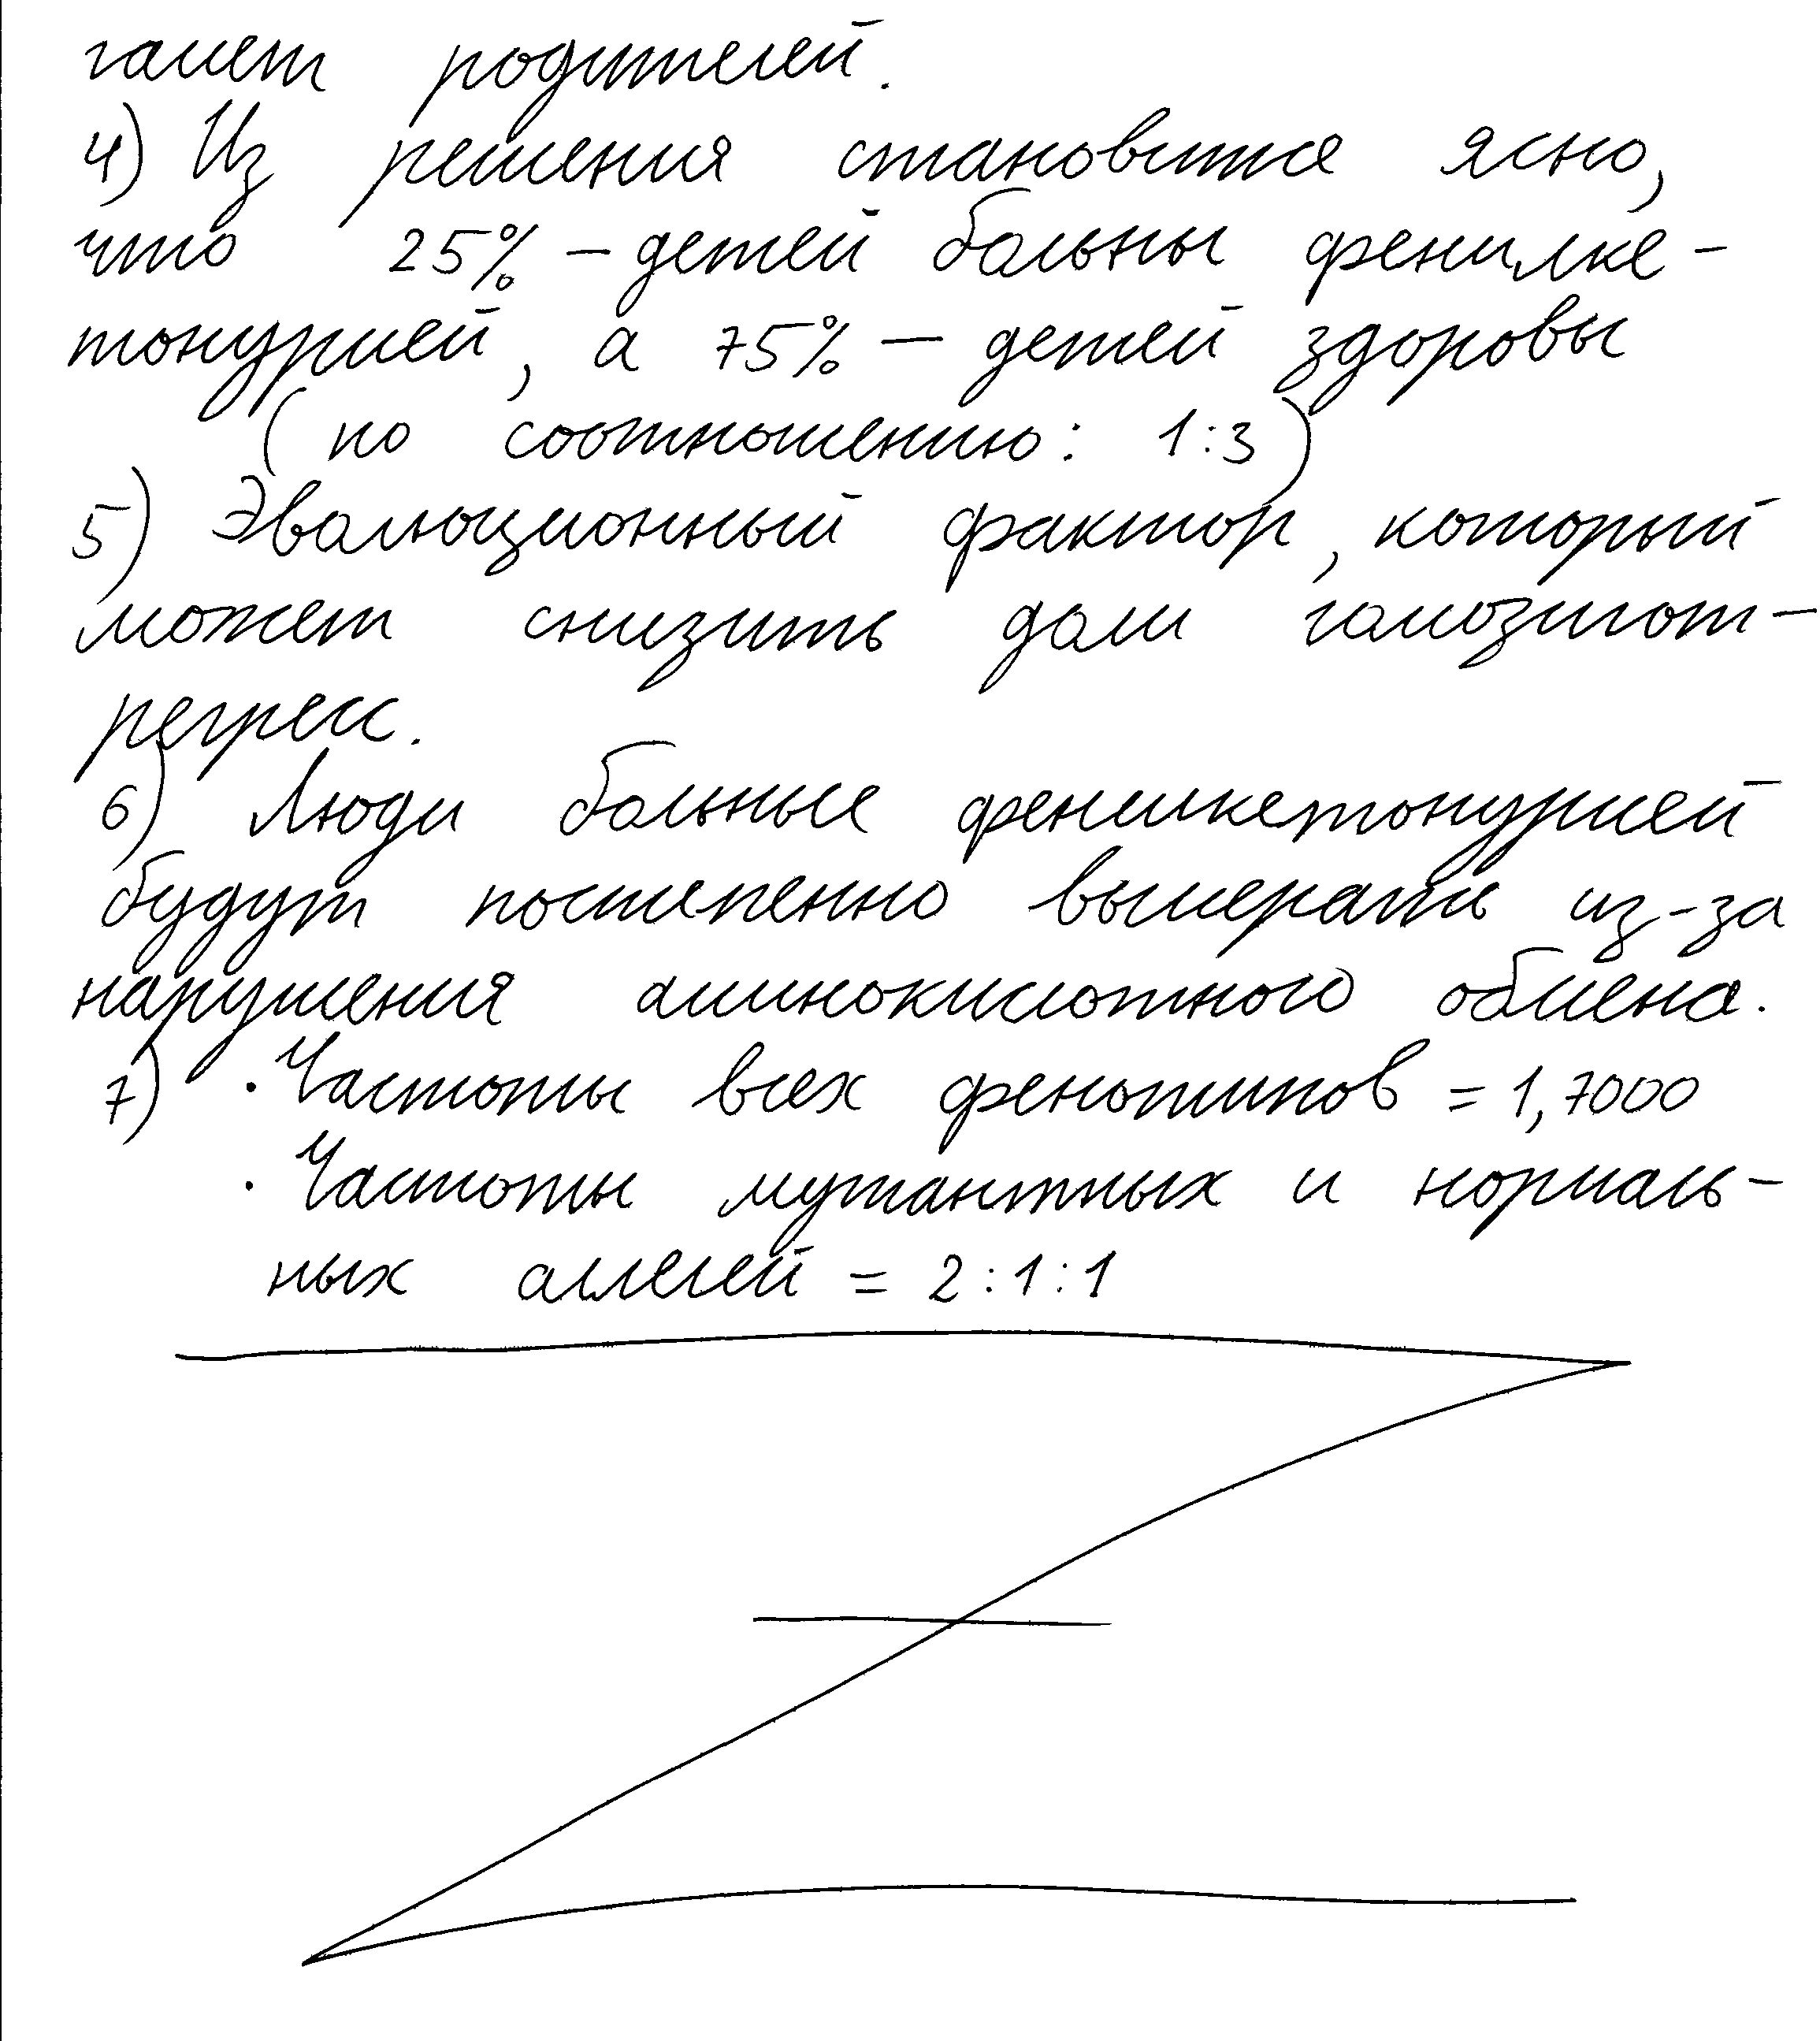 гамет родителей.
4) Из решения становится ясно,
что 25% – детей больны фенилке-
тонурией, а 75% – детей здоровы
( по соотношению: 1:3)
5) Эволюционный фактор, который
может снизить доли гомозигот –
регресс.
6) Люди больные фенилкетонурией
будут постепенно вымерать из-за
нарушения аминокислотного обмена.
7) · Частоты всех фенотипов = 1,7000
· Частоты мутантных и нормаль-
ных аллелей = 2:1:1